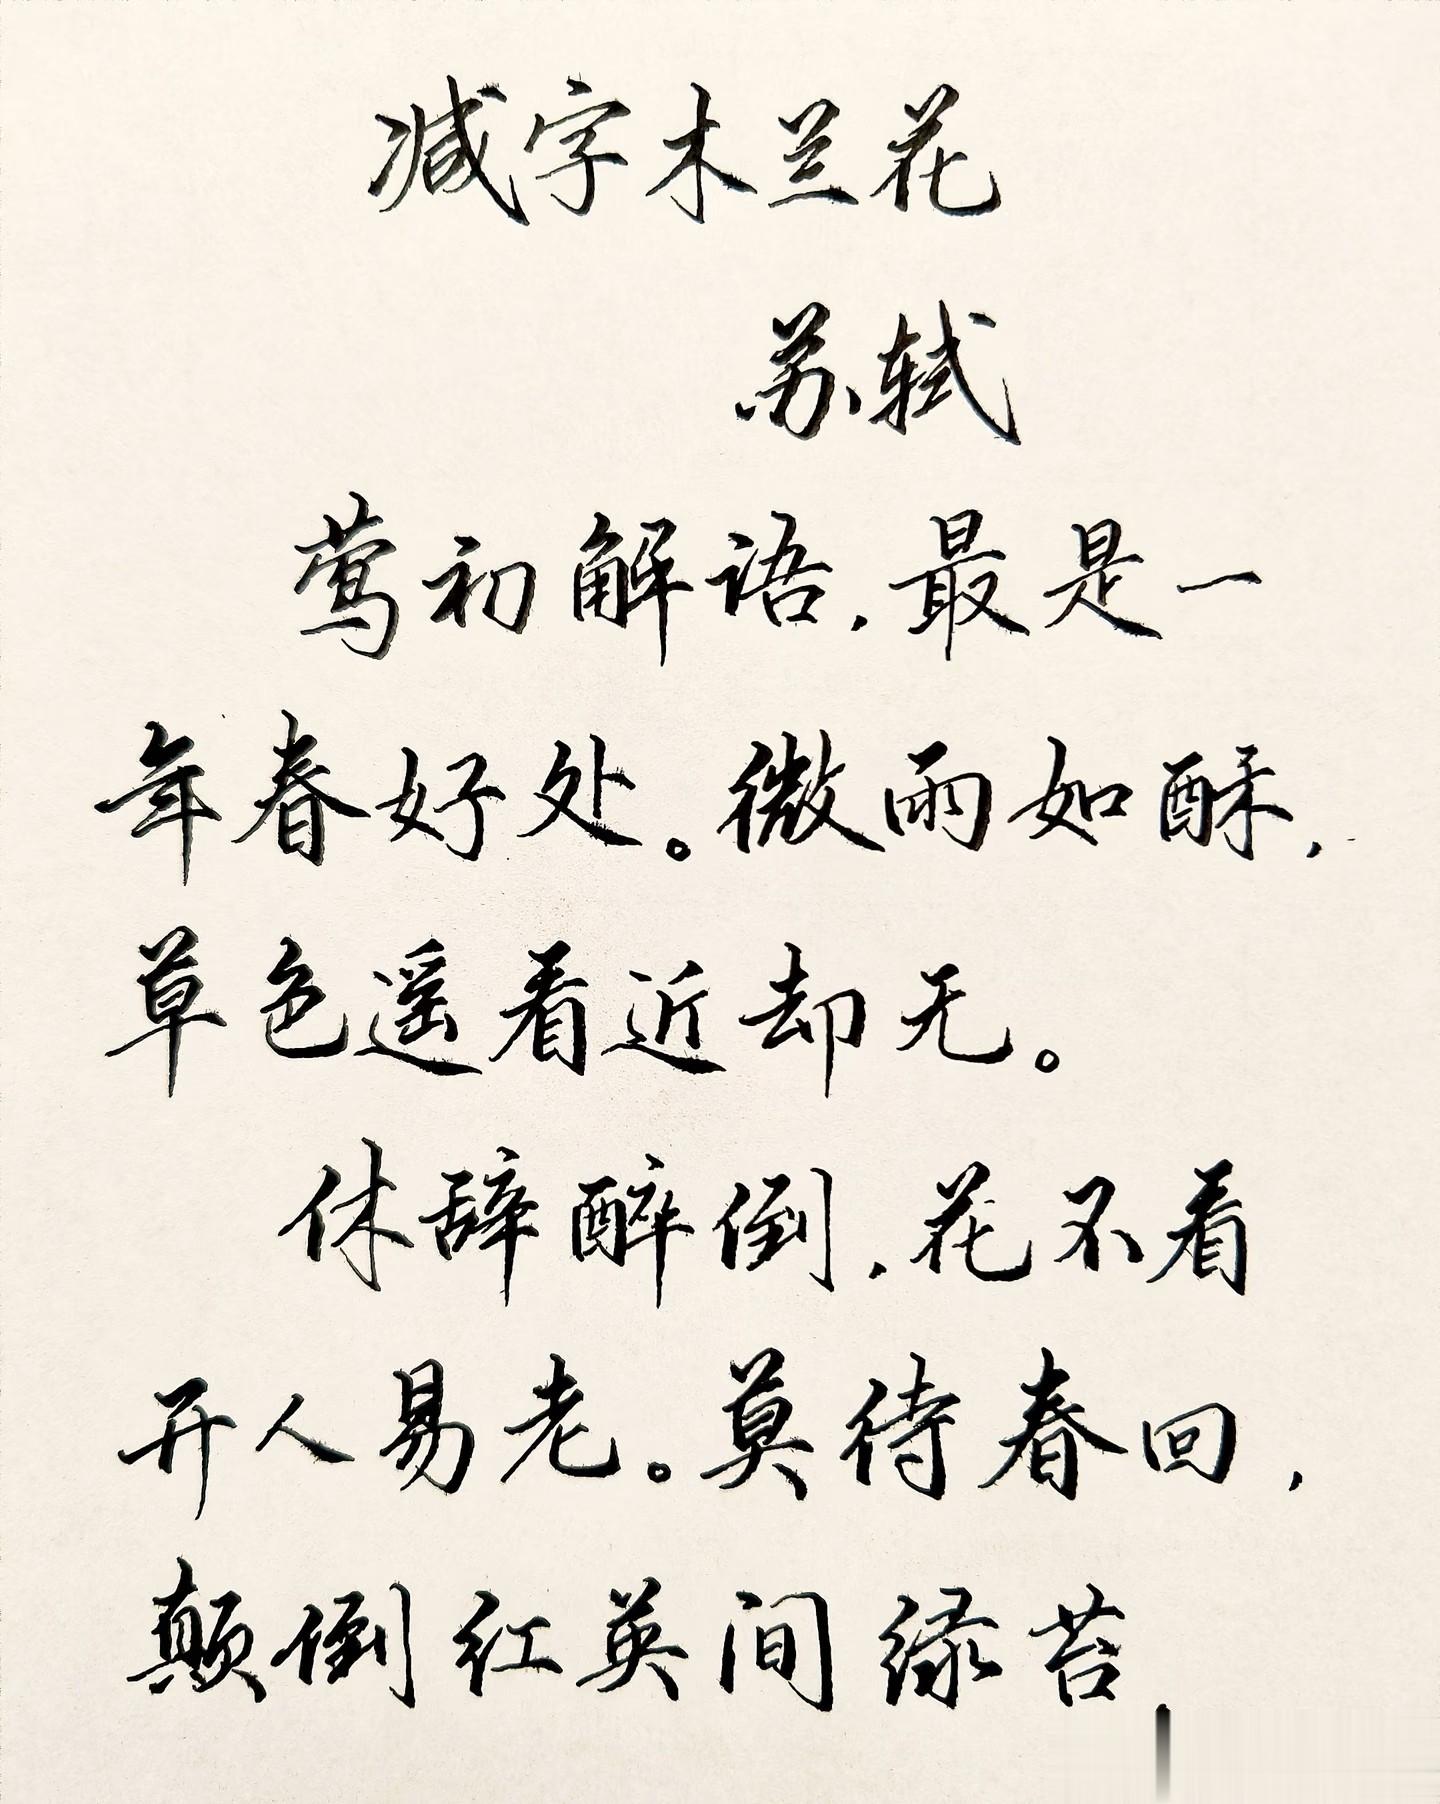 减字木兰花
苏轼
莺初解语，最是一
年春好处。微雨如酥，
草色遥看近却无。
休辞醉倒，花不看
开人易老。莫待春回，
颠倒红英间绿苔